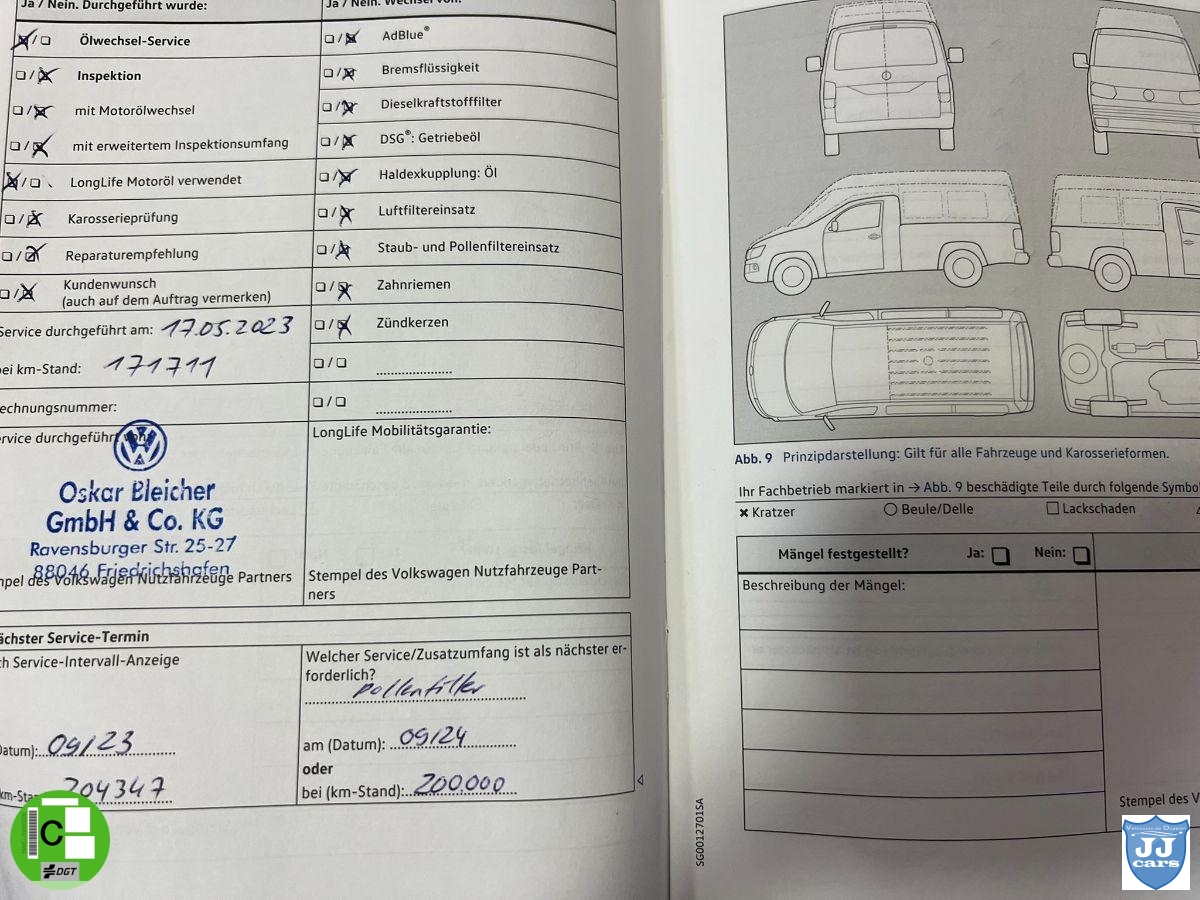 Ja / Nein. Durchgeführt wurde:
Ölwechsel-Service
Inspektion
mit Motorölwechsel
mit erweitertem Inspektionsumfang
LongLife Motoröl verwendet
Karosserieprüfung
Reparaturempfehlung
Kundenwunsch
(auch auf dem Auftrag vermerken)
Service durchgeführt am: 17.05.2023
bei km-Stand: 171711
echnungsnummer:
ervice durchgeführt von:
Oskar Bleicher
GmbH & Co. KG
Ravensburger Str. 25-27
88046 Friedrichshafen
mpel des Volkswagen Nutzfahrzeuge Partners
Ja / Nein. Wechsel von:
AdBlue®
Bremsflüssigkeit
Dieselkraftstofffilter
DSG®: Getriebeöl
Haldexkupplung: Öl
Luftfiltereinsatz
Staub- und Pollenfiltereinsatz
Zahnriemen
Zündkerzen
LongLife Mobilitätsgarantie:
Stempel des Volkswagen Nutzfahrzeuge Part-
ners
ächster Service-Termin
ch Service-Intervall-Anzeige
Datum): 09/23
km-Sta 204347
Welcher Service/Zusatzumfang ist als nächster er-
forderlich?
Pollenfilter
am (Datum): 09/24
oder
bei (km-Stand): 200.000
Abb. 9 Prinzipdarstellung: Gilt für alle Fahrzeuge und Karosserieformen.
Ihr Fachbetrieb markiert in → Abb. 9 beschädigte Teile durch folgende Symbo
Kratzer
Beule/Delle
Lackschaden
Mängel festgestellt? Ja: Nein:
Beschreibung der Mängel:
Stempel des V
SG0012701SA
C
DGT
Vehículos de Ocasión
JJ
cars